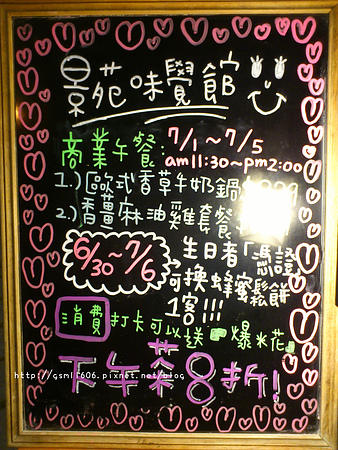 景苑味覺館
商業午餐:7/1~7/5
am11:30~pm2:00
1.)歐式香草牛奶鍋
2.)香薑麻油雞套餐
6/30~7/6
生日者「憑證」
可換蜂蜜鬆餅
1客!!!
消費打卡可以送『爆米花』
下午茶8折!
http://gsm11606.pixnet.net/blog